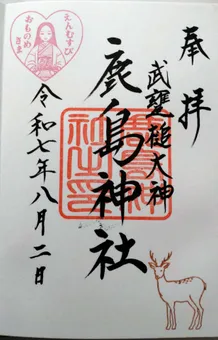 奉拝
武甕槌大神
鹿島神社
令和七年八月二日
えんむすび
おものめさま